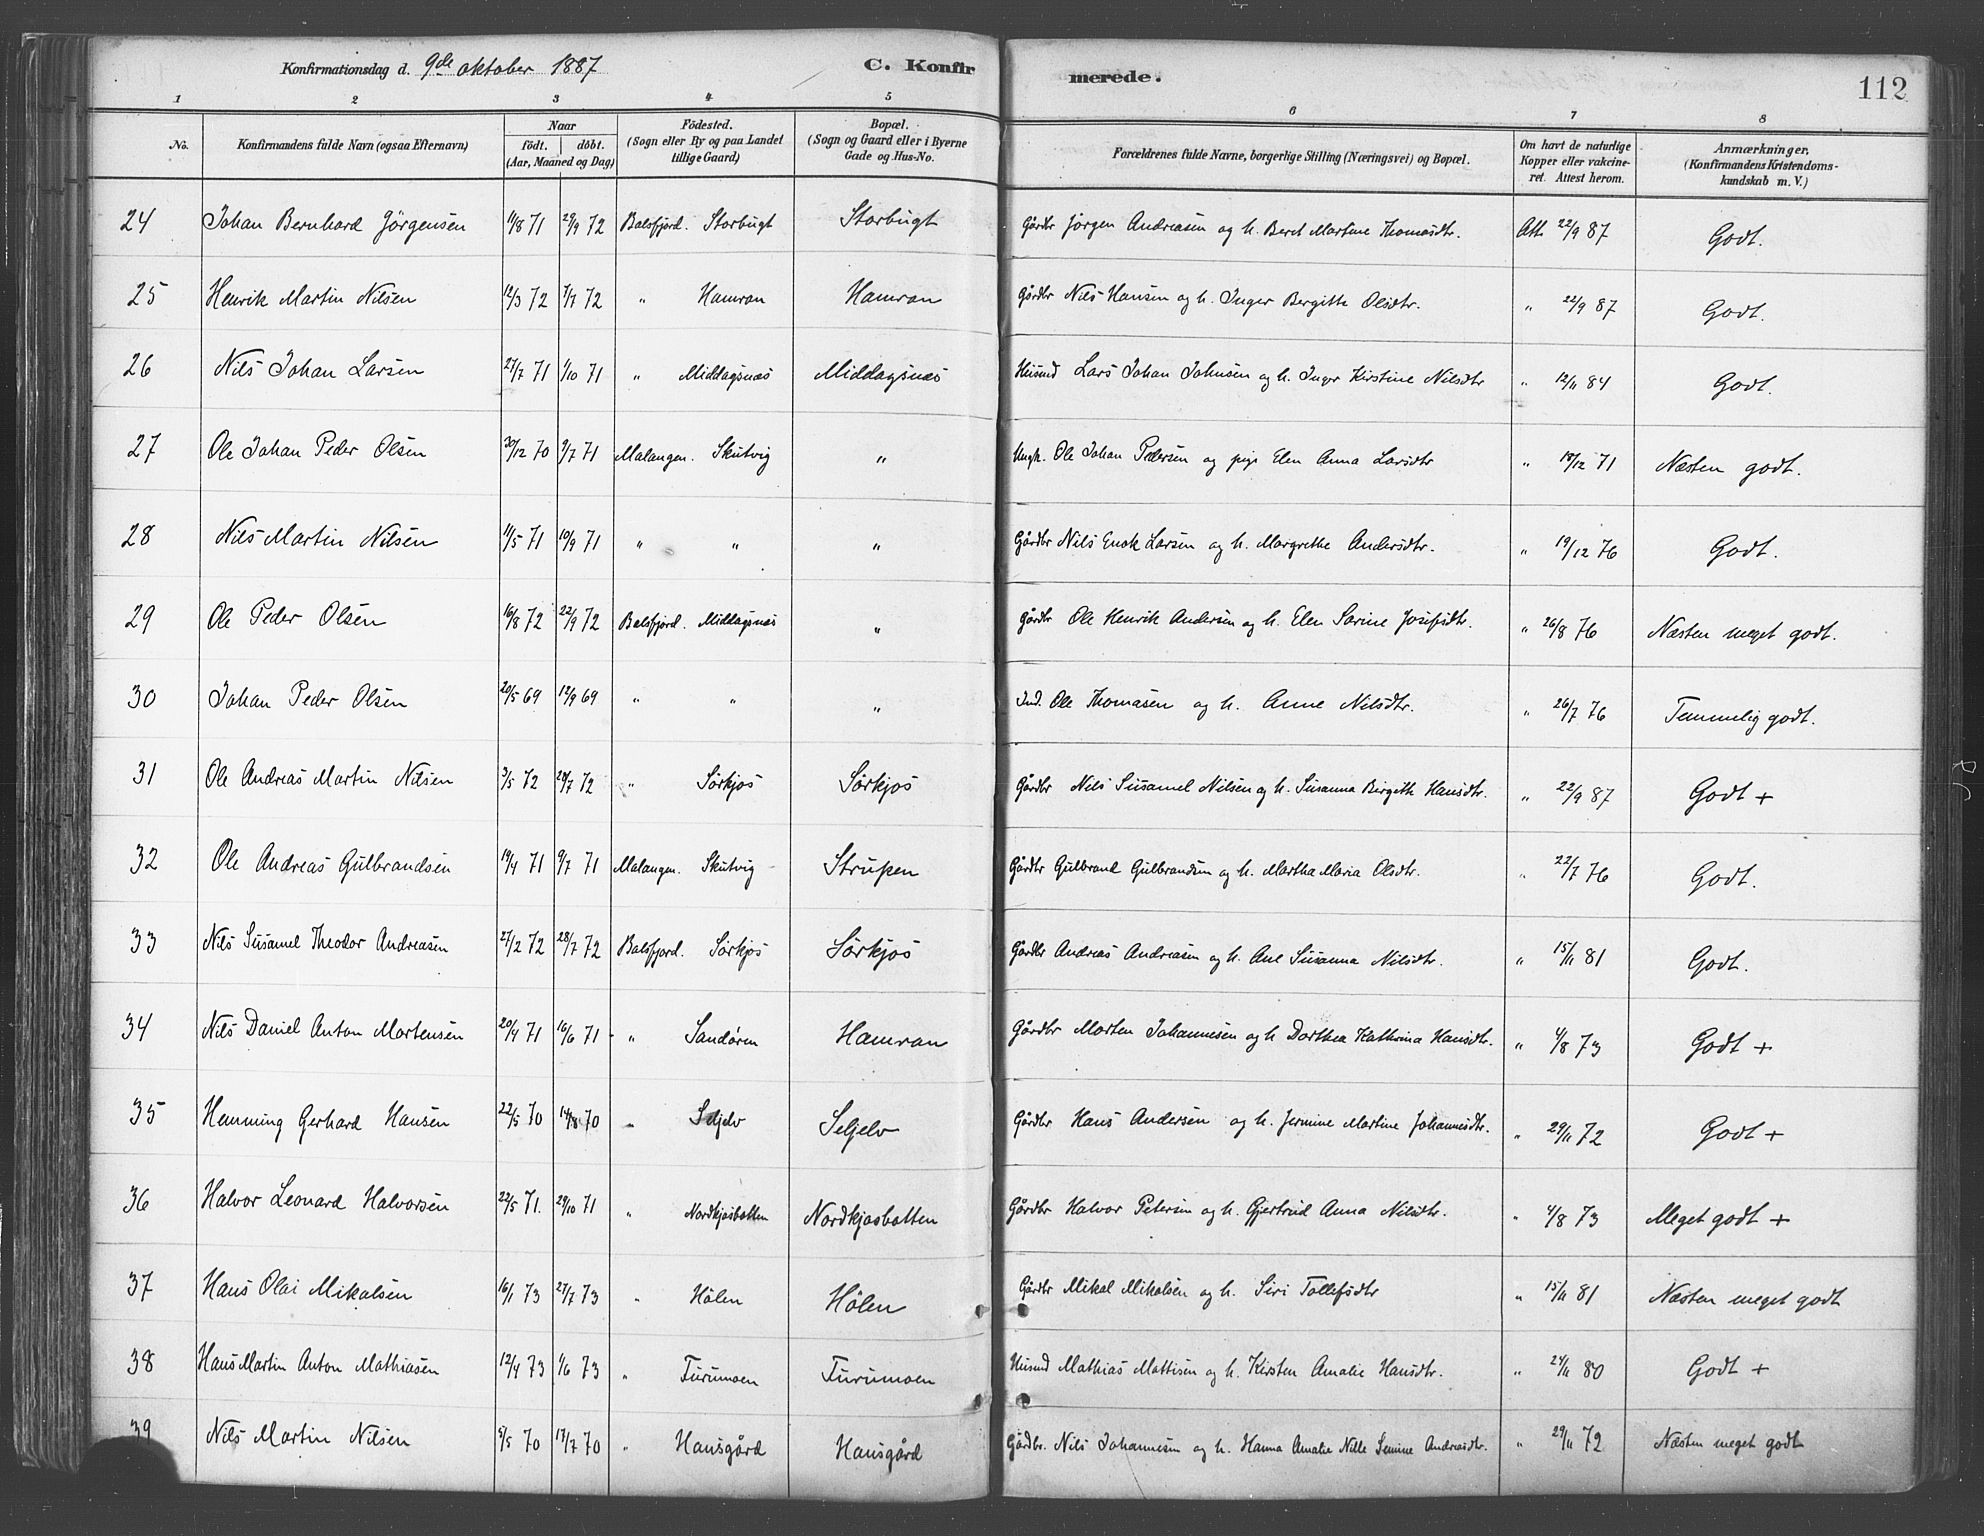 Konfirmationsdag d. 9de oktober 1887 C. Konfirmerede. 112
1 2 3 4 5 6 7 8
No. Konfirmandens fulde Navn (ogsaa Efternavn) Naar født. døbt. (Aar, Maaned og Dag) Fødested. (Sogn eller By og paa Landet tillige Gaard) Bopæl. (Sogn og Gaard eller i Byerne Gade og Hus-No. Forældrenes fulde Navne, borgerlige Stilling (Næringsvei) og Bopæl. Om havt de naturlige Kopper eller vakcineret. Attest herom. Anmærkninger. (Konfirmandens Kristendomskundskab m. V.)
24 Johan Bernhard Jörgensen 11/8 71 29/9 72 Balsfjord. Storbugt Storbugt Gårdbr Jörgen Andreasen og h. Beret Martine Thomasdtr. Att. 22/9 87 Godt.
25 Henrik Martin Nilsen 12/3 72 7/7 72 " Hamran Hamran Gårdbr Nils Hansen og h. Inger Bergitte Olsdtr. " 22/9 87 Godt.
26 Nils Johan Larsen 27/7 71 1/10 71 " Middagsnæs Middagsnæs Husmd Lars Johan Johnsen og h. Inger Kirstine Nilsdtr " 12/11 84 Godt.
27 Ole Johan Peder Olsen 30/12 70 9/7 71 Malangen. Skutvig " Ungk. Ole Johan Pedersen og pige Elen Anna Larsdtr " 18/12 71 Næsten godt.
28 Nils Martin Nilsen 11/5 71 10/9 71 " " " Gårdbr Nils Enok Larsen og h. Margrethe Andersdtr. " 19/12 76 Godt.
29 Ole Peder Olsen 16/8 72 22/9 72 Balsfjord. Middagsnæs " Gårdbr Ole Henrik Andersen og h. Elen Sarine Josefsdtr. " 26/8 76 Næsten meget godt.
30 Johan Peder Olsen 20/5 69 12/9 69 " " " Ind. Ole Thomasen og h. Anne Nilsdtr. " 26/7 76 Temmelig godt.
31 Ole Andreas Martin Nilsen 3/5 72 28/7 72 " Sörkjos Sörkjos Gårdbr Nils Susamel Nilsen og h. Susanna Birgitte Hansdtr. " 22/9 87 Godt +
32 Ole Andreas Gulbrandsen 19/4 71 9/7 71 Malangen. Skutvig Strupen Gårdbr Gulbrand Gulbrandsen og h. Martha Maria Olsdtr. " 22/7 76 Godt.
33 Nils Susamel Theodor Andreasen 27/2 72 28/7 72 Balsfjord. Sörkjos Sörkjos Gårdbr Andreas Andreasen og h. Ane Susanna Nilsdtr. " 15/11 81 Godt.
34 Nils Daniel Anton Mortensen 20/4 71 16/6 71 " Sandören Hamran Gårdbr Morten Johannesen og h Dorthea Kathrina Hansdtr. " 4/8 73 Godt +
35 Hemming Gerhard Hansen 22/5 70 14/8 70 " Seljelv Seljelv Gårdbr Hans Andersen og h. Jermine Martine Johannesdtr. " 29/11 72 Godt +
36 Halvor Leonard Halvorsen 22/5 71. 29/10 71 " Nordkjosbotten Nordkjosbotten Gårdbr Halvor Petersen og h. Gjertrud Anna Nilsdtr. " 4/8 73 Meget godt +
37 Hans Olai Mikalsen 16/1 73 27/7 73 " Hölen Hölen Gårdbr Mikal Mikalsen og h. Siri Tollefsdtr " 15/11 81 Næsten meget godt
38 Hans Martin Anton Mathiasen 12/4 73 1/6 73 " Furumoen Furumoen Husmd Mathias Mattisen og h. Kirsten Amalie Hansdtr. " 24/11 80 Godt +
39 Nils Martin Nilsen 5/5 70 17/7 70 " Hansgård Hansgård Gårdbr. Nils Johannesen og h. Hanna Amalie Nille Semine Andreasdtr. " 29/11 72 Næsten meget godt